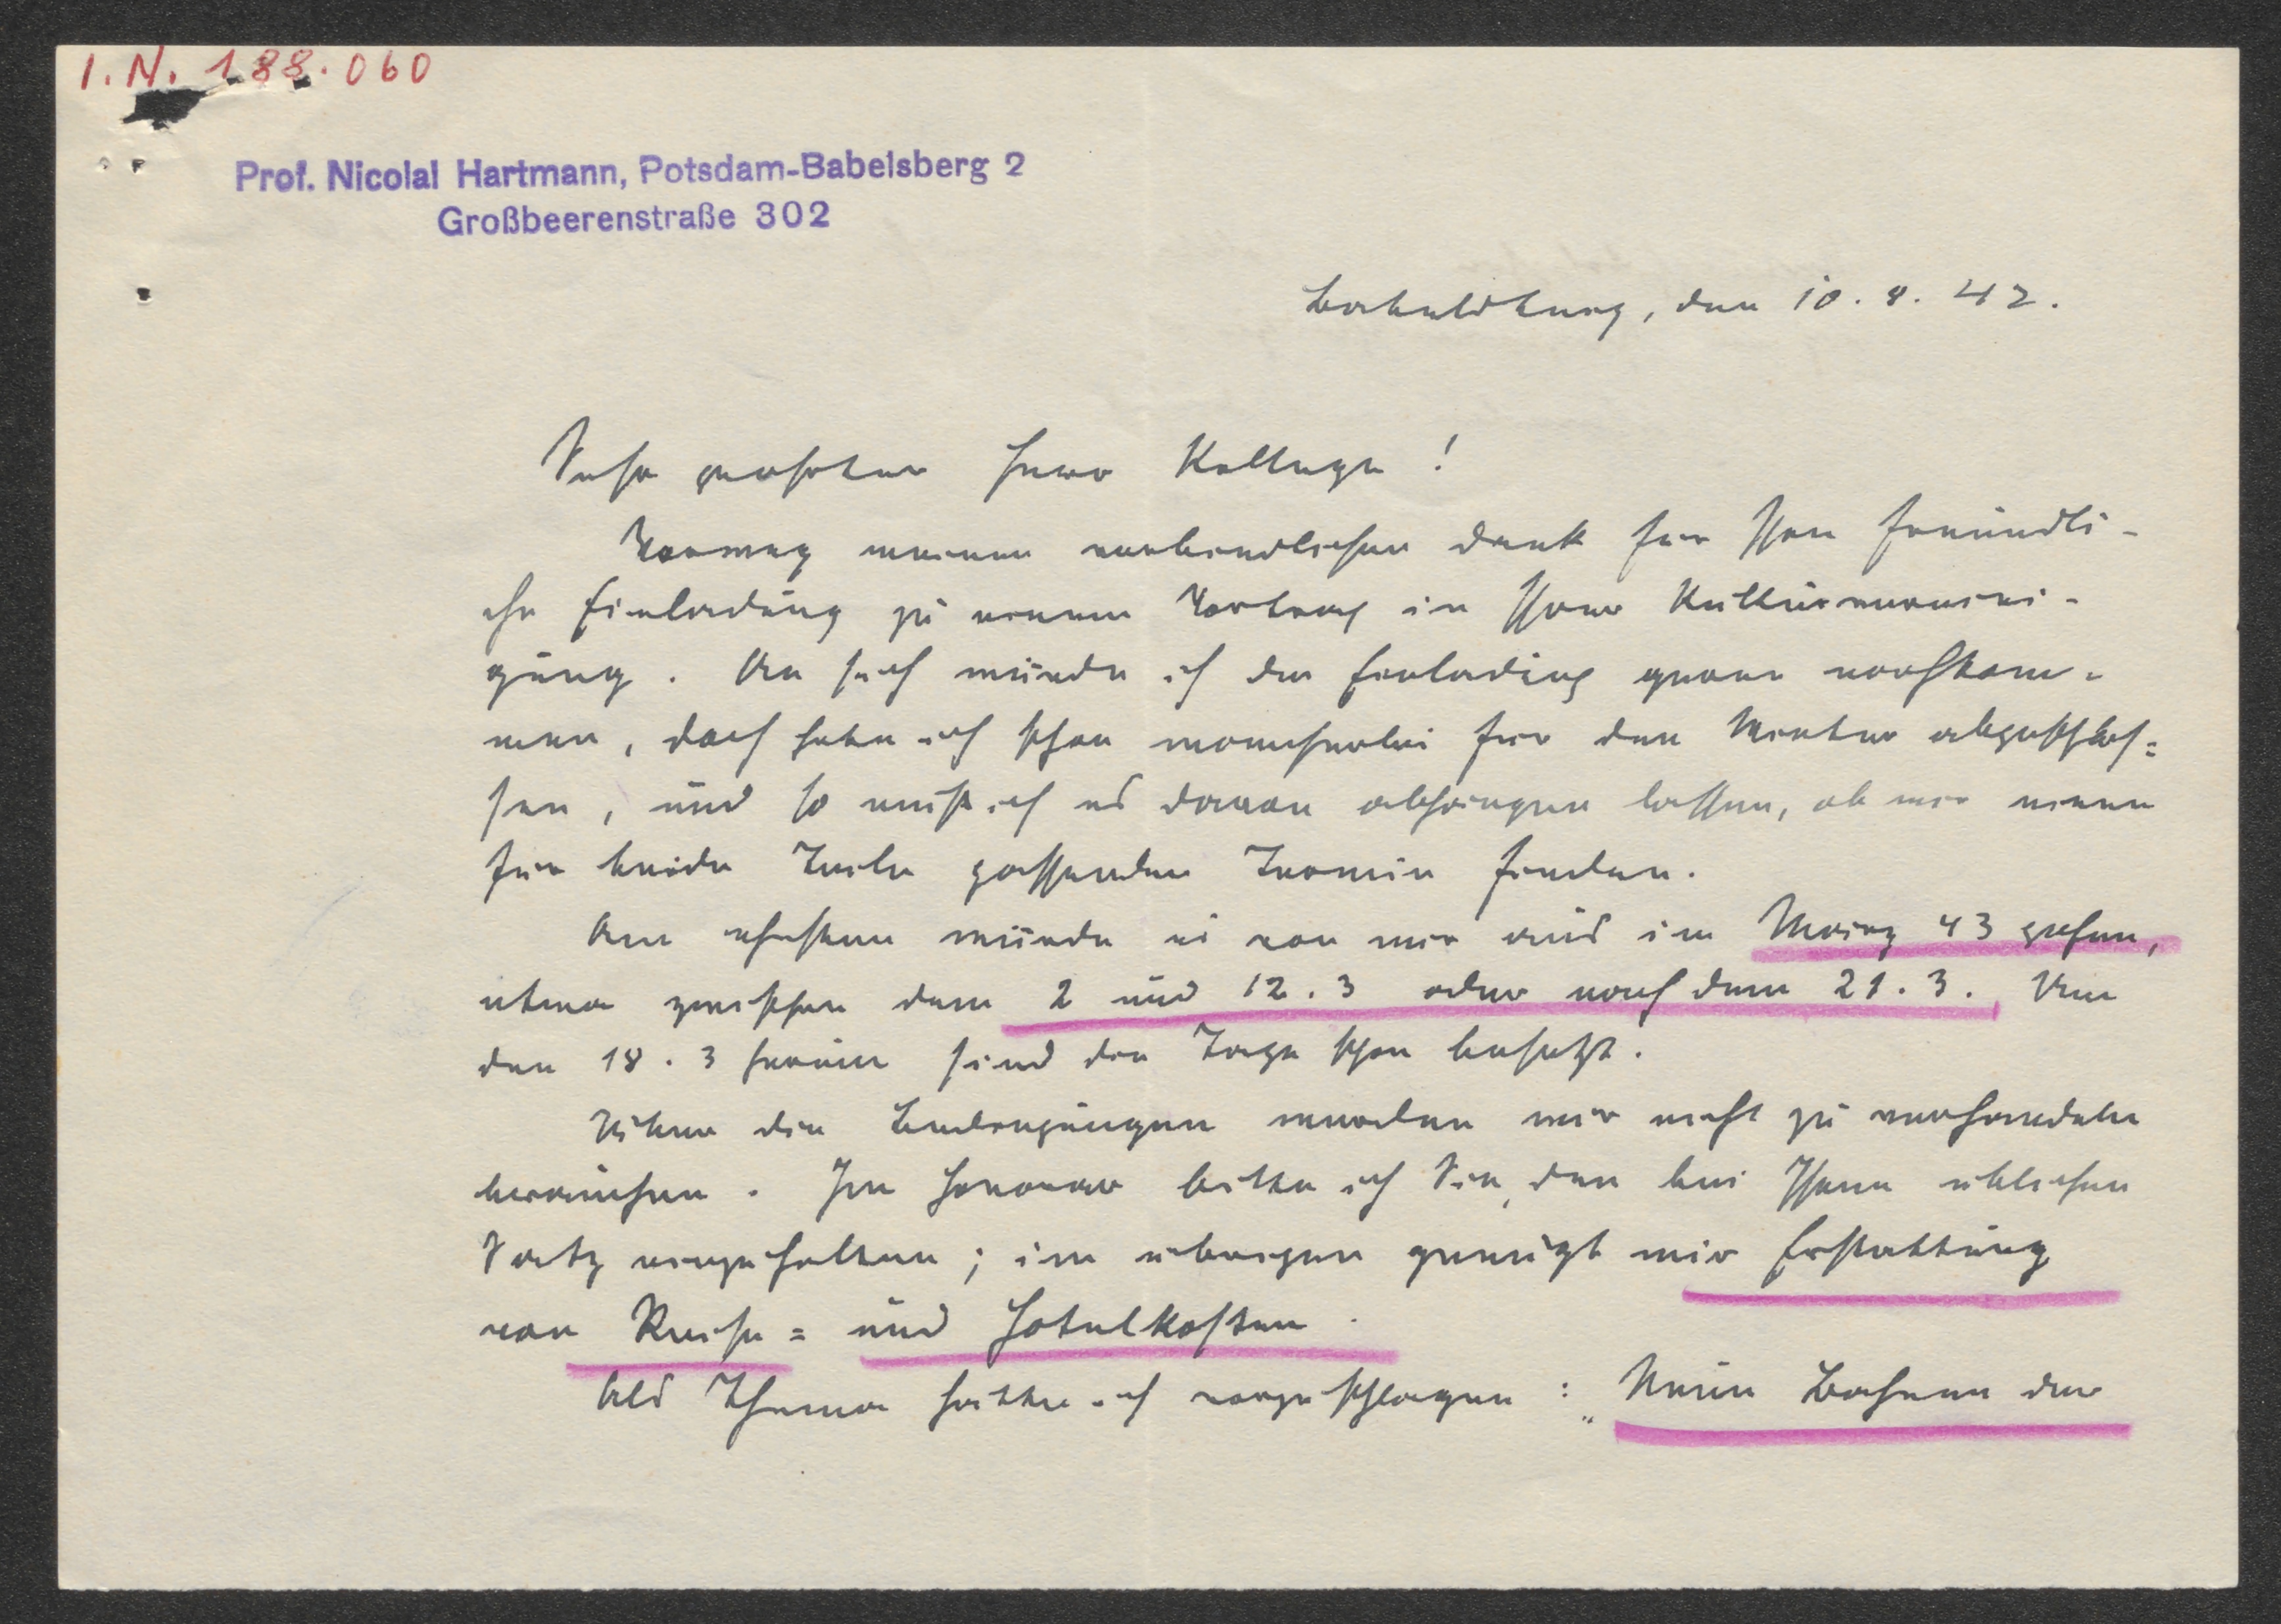 I.N. 188.060
Prof. Nicolai Hartmann, Potsdam-Babelsberg 2
Großbeerenstraße 302
Babelsberg, den 10. 8. 42.
Sehr geehrter Herr Kollege!
Vorweg meinen verbindlichen Dank für Ihre freundli-
che Einladung zu einem Vortrag in Ihrer Kulturvereini-
gung. An sich würde ich der Einladung gerne nachkom-
men, doch habe ich schon mancherlei für den Winter abgeschlos=
sen, und so muß ich es davon abhängen lassen, ob wir einen
für beide Teile passenden Termin finden.
Am ehesten würde es von mir aus im März 43 gehen,
etwa zwischen dem 2 und 12. 3 oder nach dem 21. 3. Um
den 18. 3 herum sind die Tage schon besetzt.
Über die Bedingungen werden wir nicht zu verhandeln
brauchen. Im Honorar bitte ich Sie, den bei Ihnen üblichen
Satz einzuhalten; im übrigen genügt mir Erstattung
von Reise= und Hotelkosten.
Als Thema hätte ich vorzuschlagen: „Neue Bahnen der